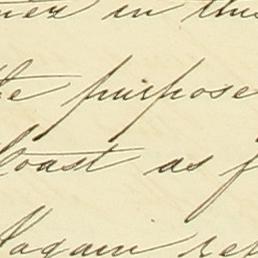 in this
the purpose
Coast as f
again re